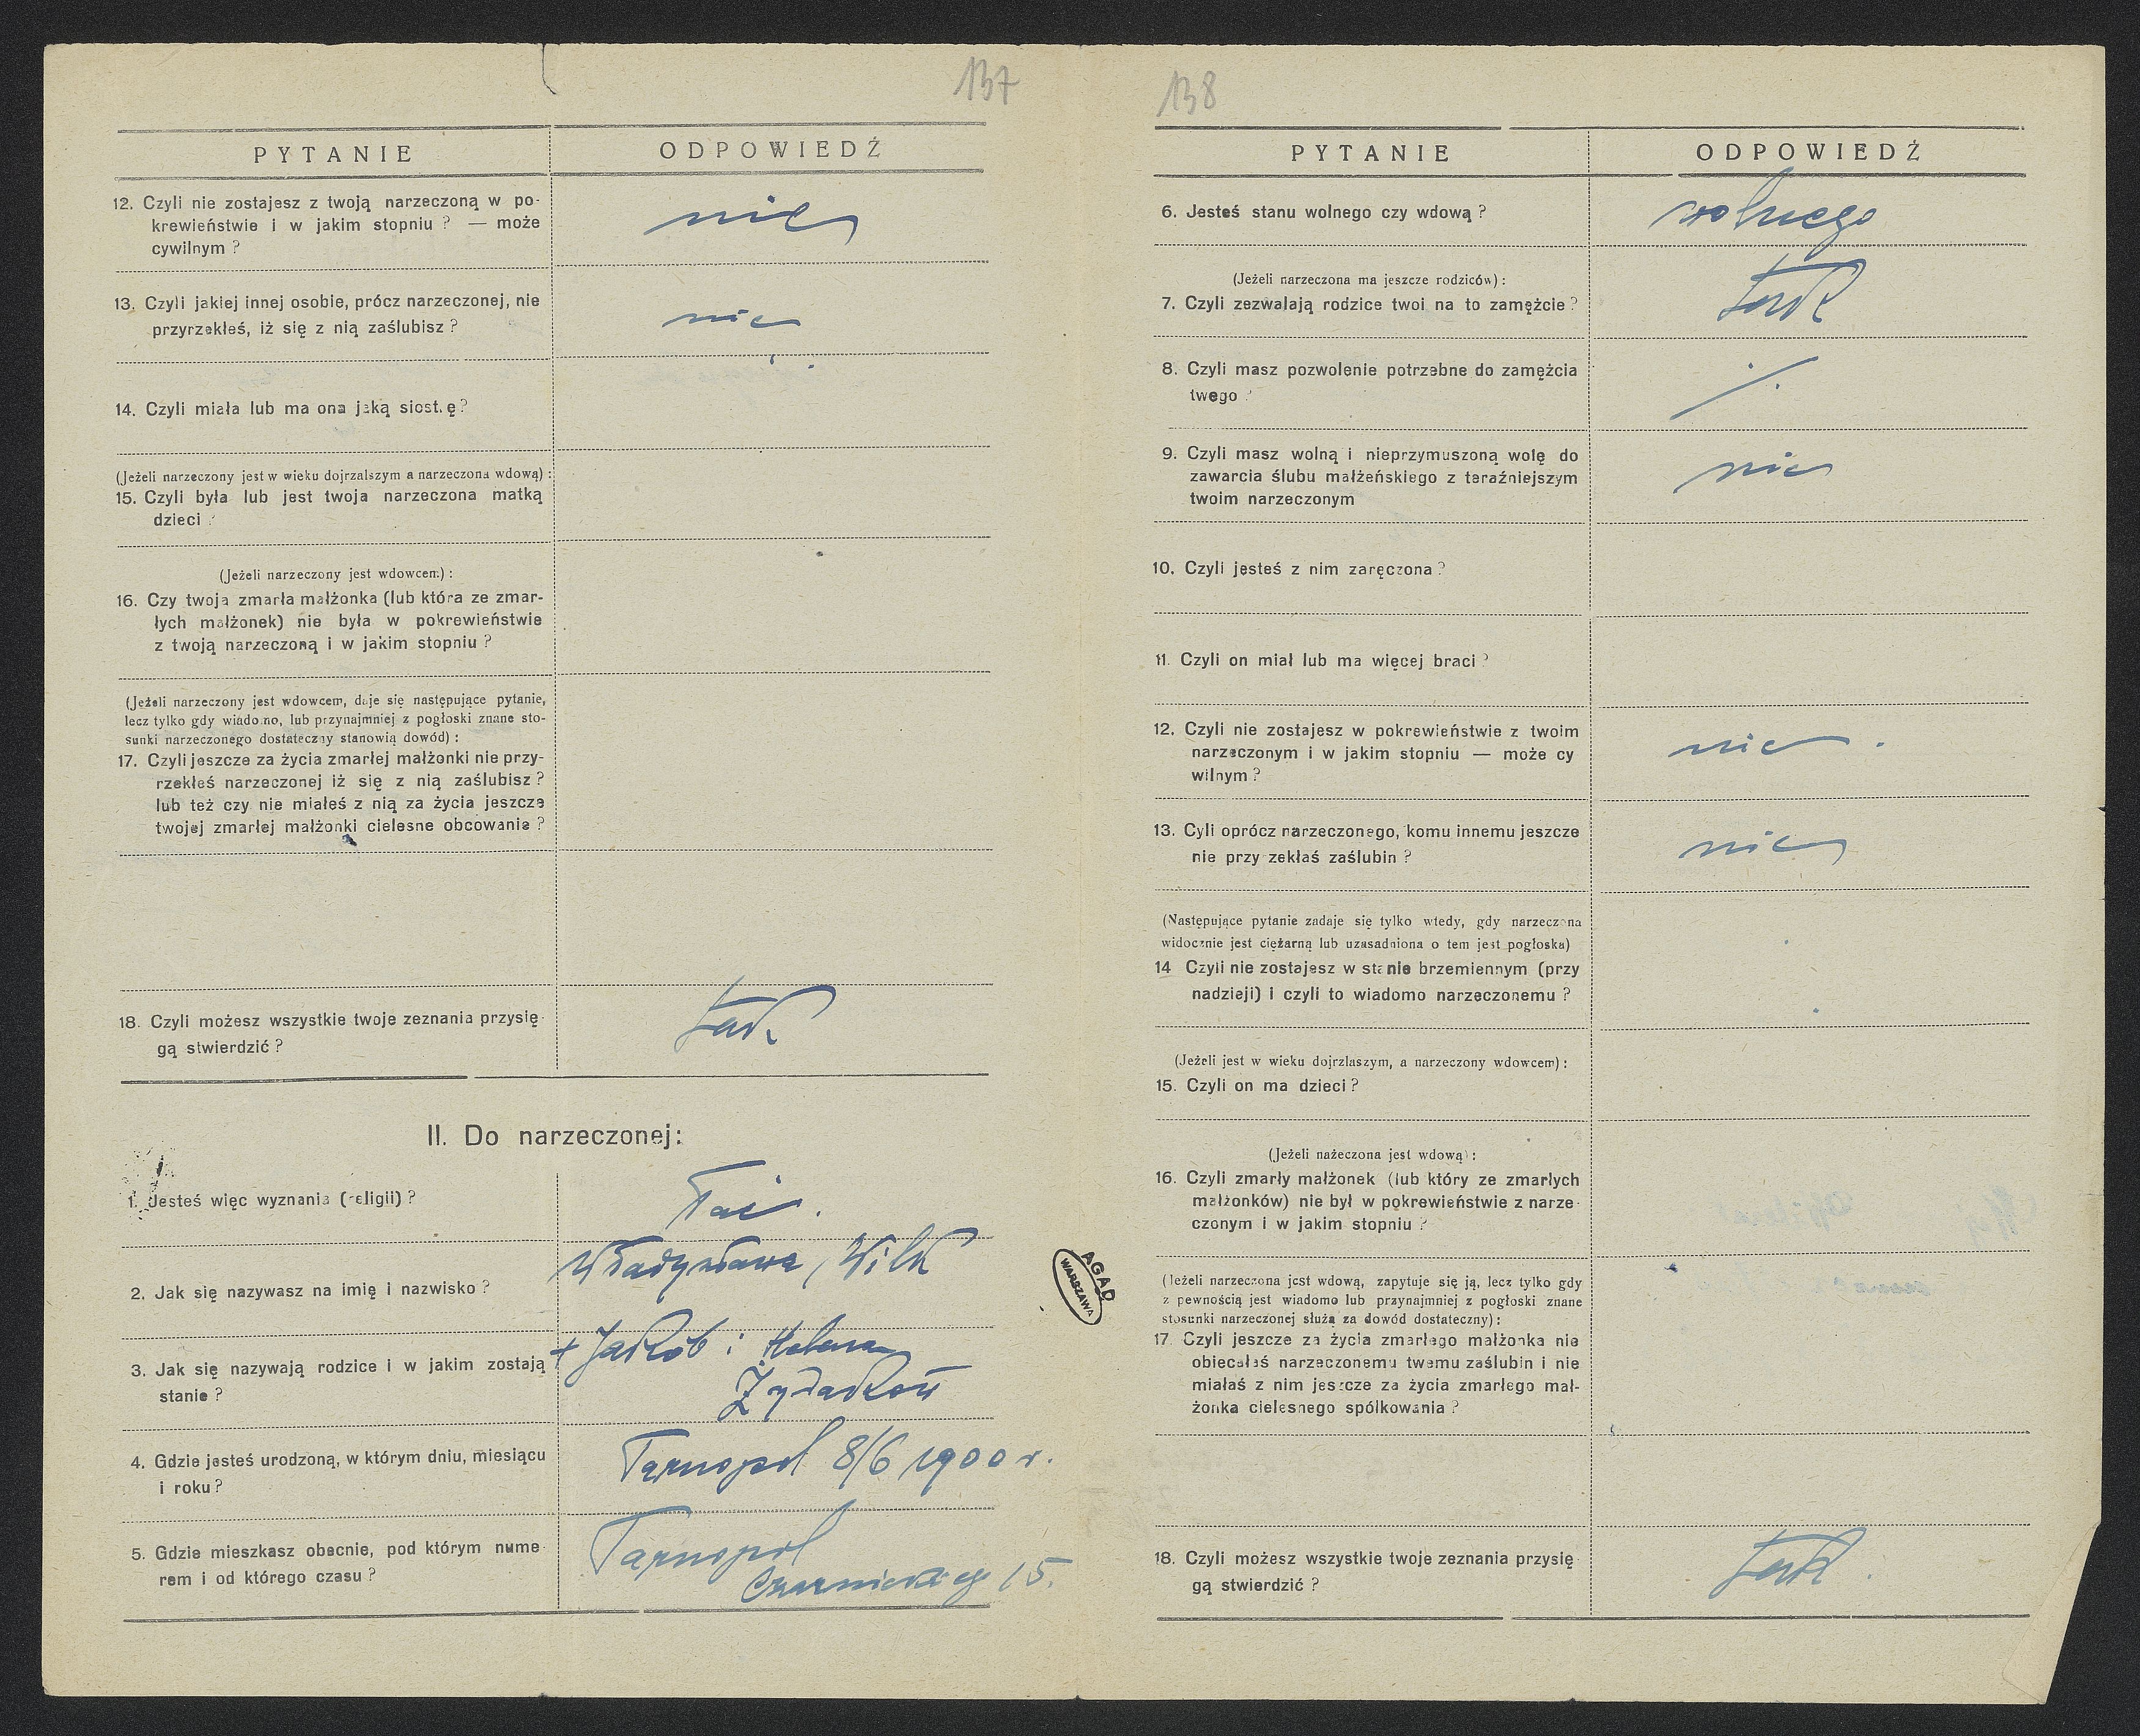 137
PYTANIE
ODPOWIEDŹ
12. Czyli nie zostajesz z twoją narzeczoną w po-
krewieństwie i w jakim stopniu? — może
cywilnym?
nie
13. Czyli jakiej innej osobie, prócz narzeczonej, nie
przyrzekłeś, iż się z nią zaślubisz?
nie
14. Czyli miała lub ma ona jaką siostrę?
(Jeżeli narzeczony jest w wieku dojrzalszym a narzeczona wdową):
15. Czyli była lub jest twoja narzeczona matką
dzieci?
(Jeżeli narzeczony jest wdowcem):
16. Czy twoja zmarła małżonka (lub która ze zmar-
łych małżonek) nie była w pokrewieństwie
z twoją narzeczoną i w jakim stopniu?
(Jeżeli narzeczony jest wdowcem, daje się następujące pytanie,
lecz tylko gdy wiadomo, lub przynajmniej z pogłoski znane sto-
sunki narzeczonego dostateczny stanowią dowód):
17. Czyli jeszcze za życia zmarłej małżonki nie przy-
rzekłeś narzeczonej iż się z nią zaślubisz?
lub też czy nie miałeś z nią za życia jeszcze
twojej zmarłej małżonki cielesne obcowanie?
18. Czyli możesz wszystkie twoje zeznania przysię-
gą stwierdzić?
tak
II. Do narzeczonej:
1. Jesteś więc wyznania (religii)?
łać.
2. Jak się nazywasz na imię i nazwisko?
Władysława, Wilk
3. Jak się nazywają rodzice i w jakim zostają
stanie?
+ Jakób i Helena
4. Gdzie jesteś urodzoną, w którym dniu, miesiącu
i roku?
Tarnopol 8/6 1900 r.
5. Gdzie mieszkasz obecnie, pod którym nume-
rem i od którego czasu?
Tarnopol
Czarnieckiego 15.
AGAD
WARSZAWA
138
PYTANIE
ODPOWIEDŹ
6. Jesteś stanu wolnego czy wdową?
wolnego
(Jeżeli narzeczona ma jeszcze rodziców):
7. Czyli zezwalają rodzice twoi na to zamężcie?
tak
8. Czyli masz pozwolenie potrzebne do zamężcia
twego?
./.
9. Czyli masz wolną i nieprzymuszoną wolę do
zawarcia ślubu małżeńskiego z teraźniejszym
twoim narzeczonym
nie
10. Czyli jesteś z nim zaręczona?
11. Czyli on miał lub ma więcej braci?
12. Czyli nie zostajesz w pokrewieństwie z twoim
narzeczonym i w jakim stopniu — może cy
wilnym?
nie.
13. Cyli oprócz narzeczonego, komu innemu jeszcze
nie przy zekłaś zaślubin?
nie
(Następujące pytanie zadaje się tylko wtedy, gdy narzeczona
widocznie jest ciężarną lub uzasadniona o tem jest pogłoska)
14 Czyli nie zostajesz w stanie brzemiennym (przy
nadzieji) i czyli to wiadomo narzeczonemu?
(Jeżeli jest w wieku dojrzlaszym, a narzeczony wdowcem):
15. Czyli on ma dzieci?
(Jeżeli nażeczona jest wdową):
16. Czyli zmarły małżonek (lub który ze zmarłych
małżonków) nie był w pokrewieństwie z narze-
czonym i w jakim stopniu?
(Jeżeli narzeczona jest wdową, zapytuje się ją, lecz tylko gdy
z pewnością jest wiadomo lub przynajmniej z pogłoski znane
stosunki narzeczonej służą za dowód dostateczny):
17. Czyli jeszcze za życia zmarłego małżonka nie
obiecałaś narzeczonemu twemu zaślubin i nie
miałaś z nim jeszcze za życia zmarłego mał-
żonka cielesnego spólkowania?
18. Czyli możesz wszystkie twoje zeznania przysię-
gą stwierdzić?
tak.